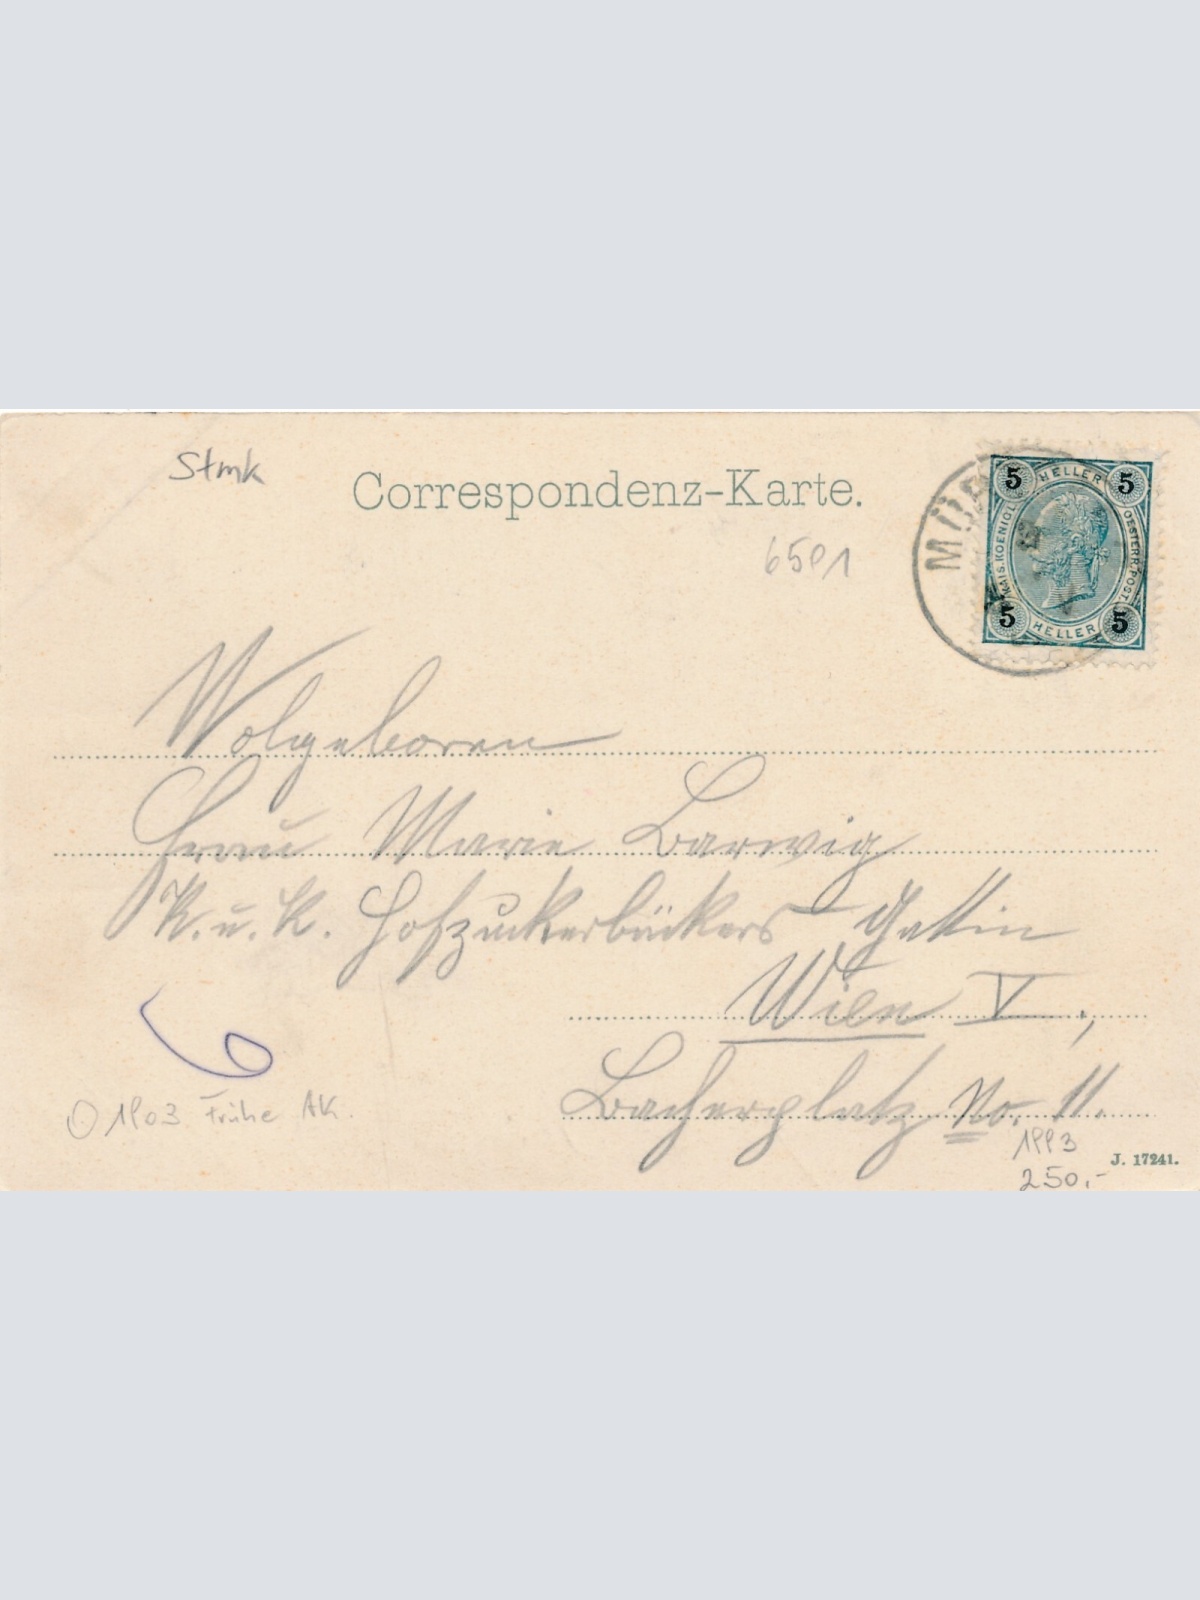 Stmk
Correspondenz-Karte.
6591
5 HELLER 5
KAIS. KOENIGL. OESTERR. POST.
5 HELLER 5
MÜR
Wolgeboren
Frau Marie Barwig
K. u. K. Hofzuckerbäckers Gattin
Wien V.,
Bacherplatz No. 11.
1903 Frühe AK.
1993
250,-
J. 17241.